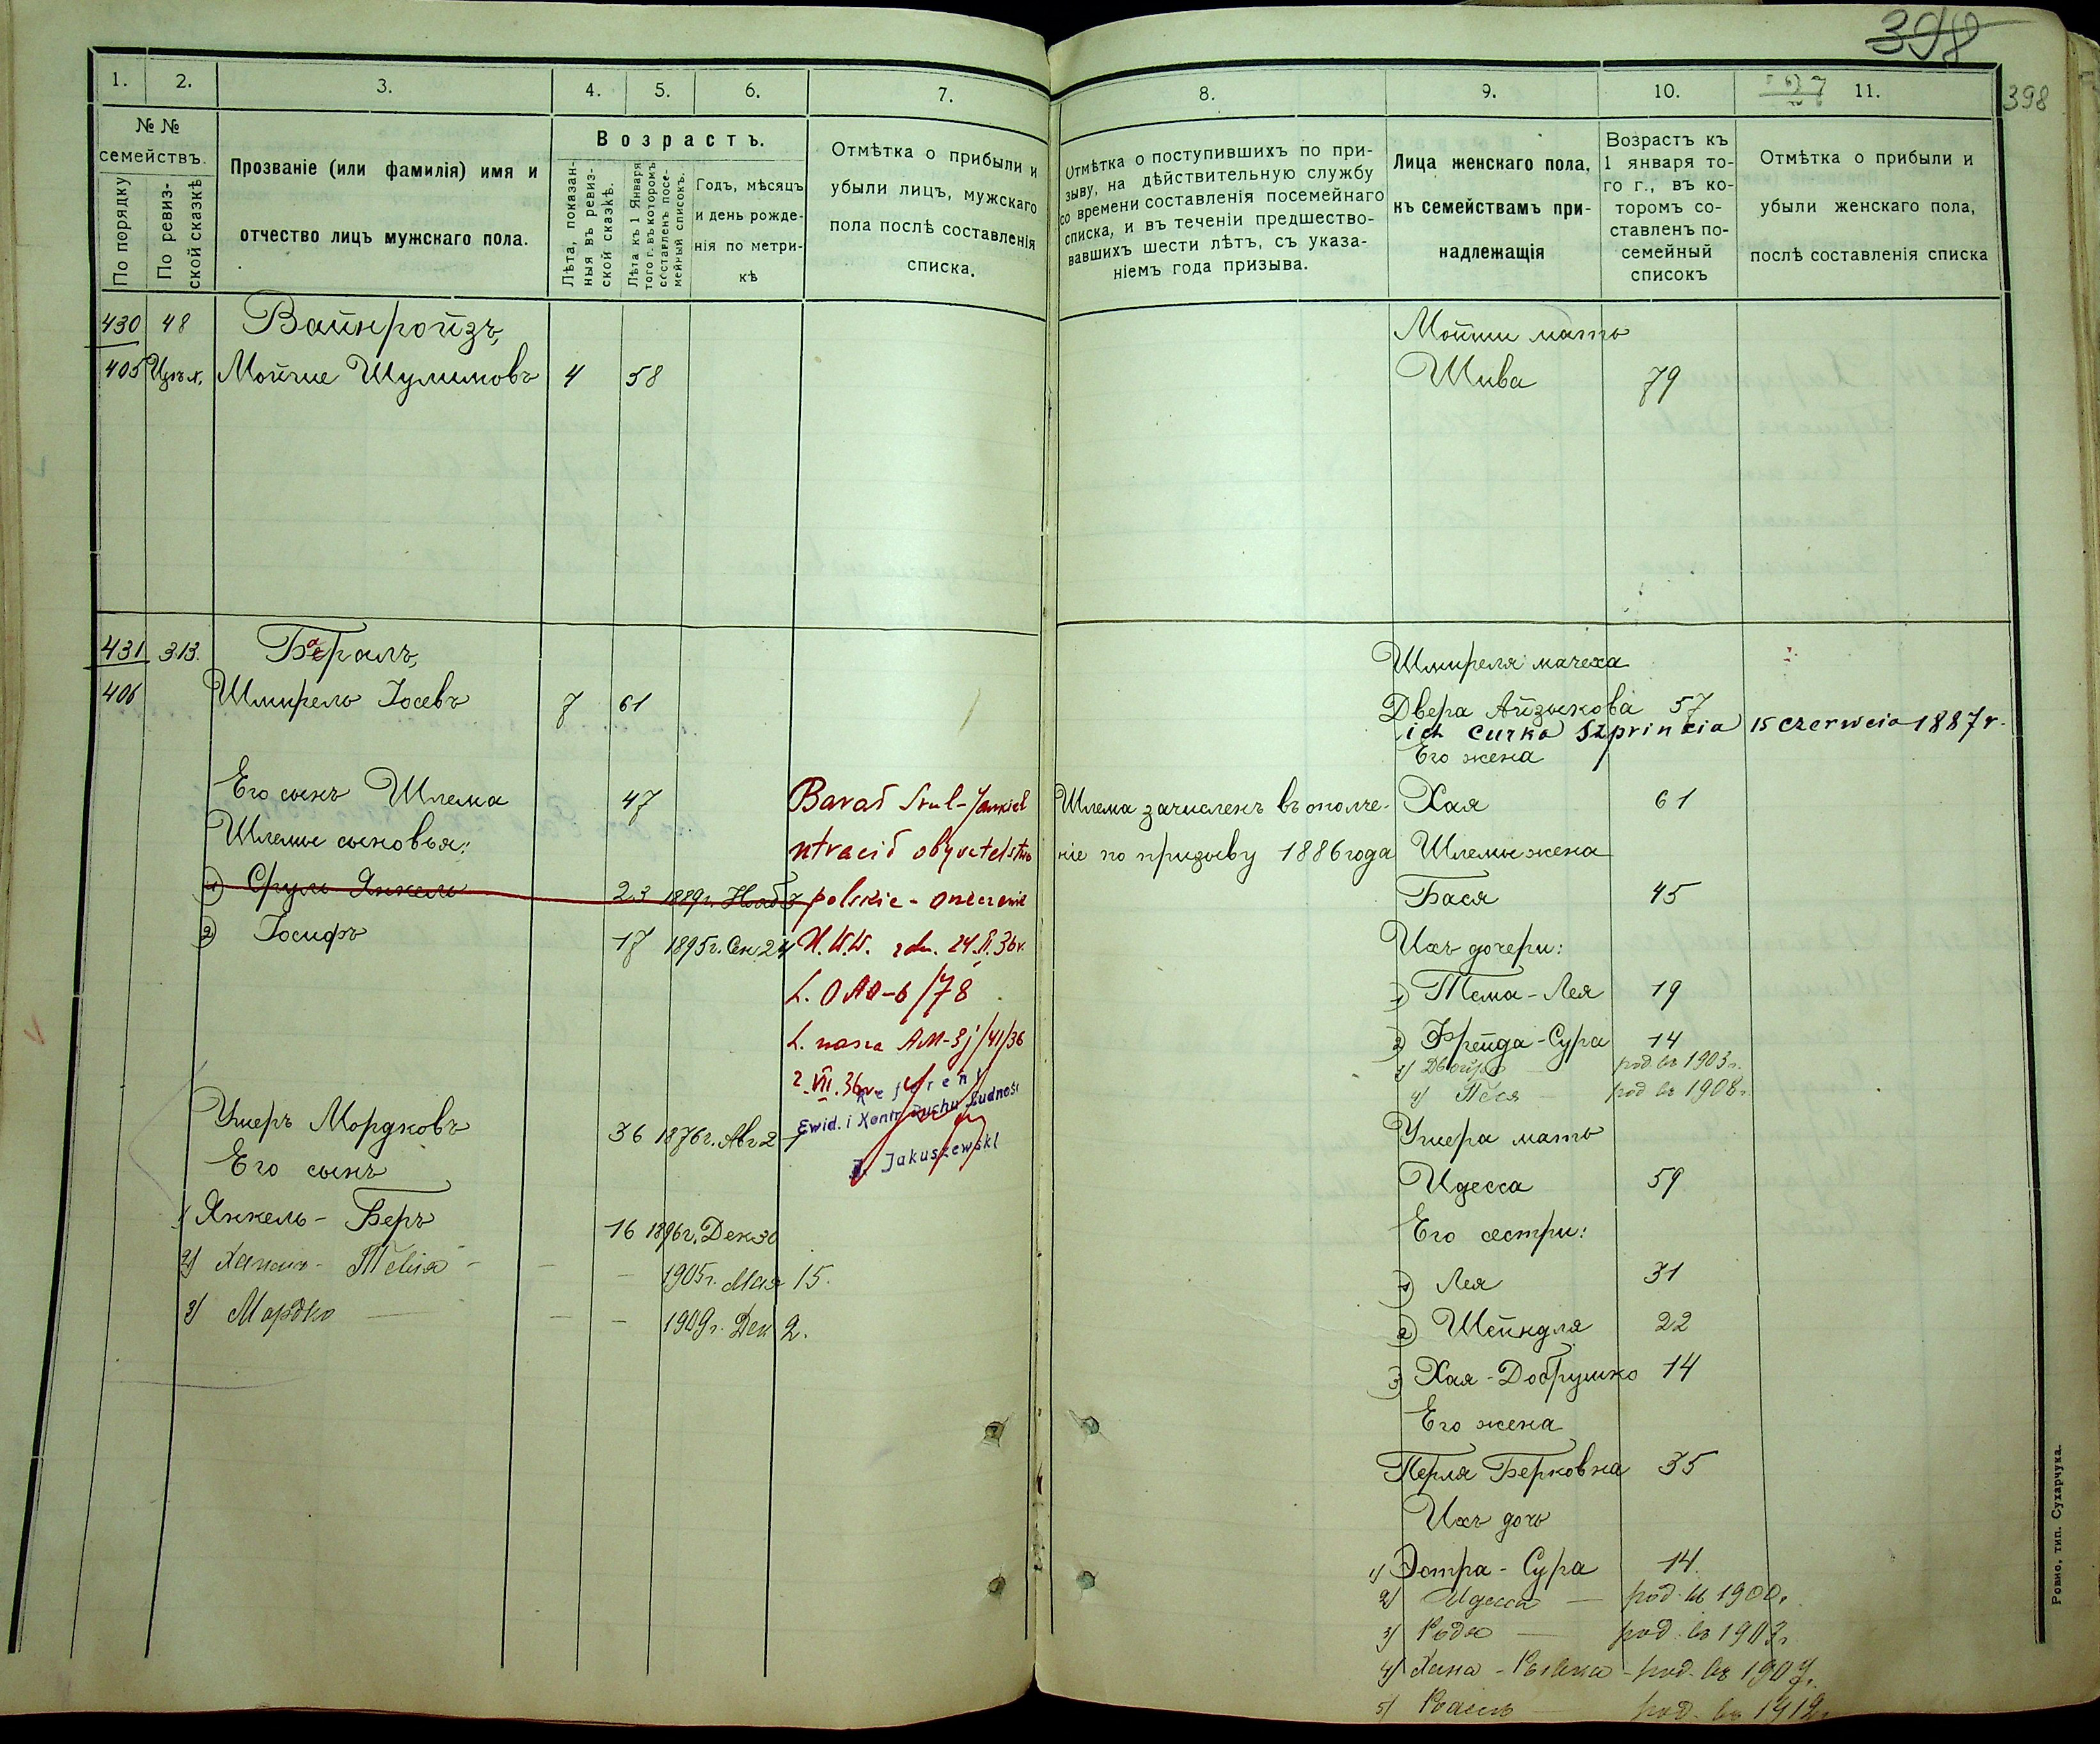 398
398
1.
2.
3.
4.
5.
6.
7.
8.
9.
10.
11.
№ №
семействъ.
По порядку
По ревиз-
ской сказкѣ
Прозваніе (или фамилія) имя и
отчество лицъ мужскаго пола.
Возрастъ.
Лѣта, показан-
ныя въ ревиз-
ской сказкѣ.
Лѣта къ 1 Января
того г. въ которомъ
составленъ посе-
мейный списокъ.
Годъ, мѣсяцъ
и день рожде-
нія по метри-
кѣ
Отмѣтка о прибыли и
убыли лицъ, мужскаго
пола послѣ составленія
списка.
Отмѣтка о поступившихъ по при-
зыву, на дѣйствительную службу
со времени составленія посемейнаго
списка, и въ теченіи предшество-
вавшихъ шести лѣтъ, съ указа-
ніемъ года призыва.
Лица женскаго пола,
къ семействамъ при-
надлежащія
Возрастъ къ
1 января то-
го г., въ ко-
торомъ со-
ставленъ по-
семейный
списокъ
Отмѣтка о прибыли и
убыли женскаго пола,
послѣ составленія списка
430 48 Вайнройзъ,
405 Мойше Шулимовъ 4 58
Мойши мать
Шива 79
431 313. Баралъ,
406 Шмирель Іосевъ 7 61
Его сынъ Шлема 47
Шлемы сыновья:
1) Сруль Янкель 23 1889г. Нояб 3
2) Іосифъ 17 1895г. Сен 24
Barad Srul-Jankiel
utracił obywatelstwo
polskie - orzeczenie
U.W.W. z dn. 24.II.36 r.
L. OAO-6/78
L. nasza AM-3j/41/36
2.VII.36 r.
Referent
Ewid. i Kontr. Ruchu Ludności
J. Jakuszewski
Ушеръ Мордковъ 36 1876г. Авг 2
Его сынъ
1) Янкель-Беръ 16 1896г. Дек 30
2) Тевія - - - 1905г. Мая 15.
3) Мордко - - - 1909г. Дек 2.
Шлема зачисленъ въ ополче-
ніе по призыву 1886 года
Шмиреля мачеха
Двера Айзыкова 57
ich curka Szprincia 15 czerwcia 1887 r.
Его жена
Хая 61
Шлемы жена
Бася 45
Ихъ дочери:
1) Тема-Лея 19
2) Фрейда-Сура 14
3) Двойра род. въ 1903 г.
4) Песя - род въ 1908 г.
Ушера мать
Идесса 59
Его сестры:
1) Лея 31
2) Шейндля 22
3) Хая-Добрушко 14
Его жена
Перля Берковна 35
Ихъ дочь
1) Эстра-Сура 14.
2) Идесса - род. въ 1900 г.
3) - род. въ 1903 г.
4) Хана-Ривка - род. въ 1907 г.
5) - род. въ 1912 г.
Ровно, тип. Сухарчука.